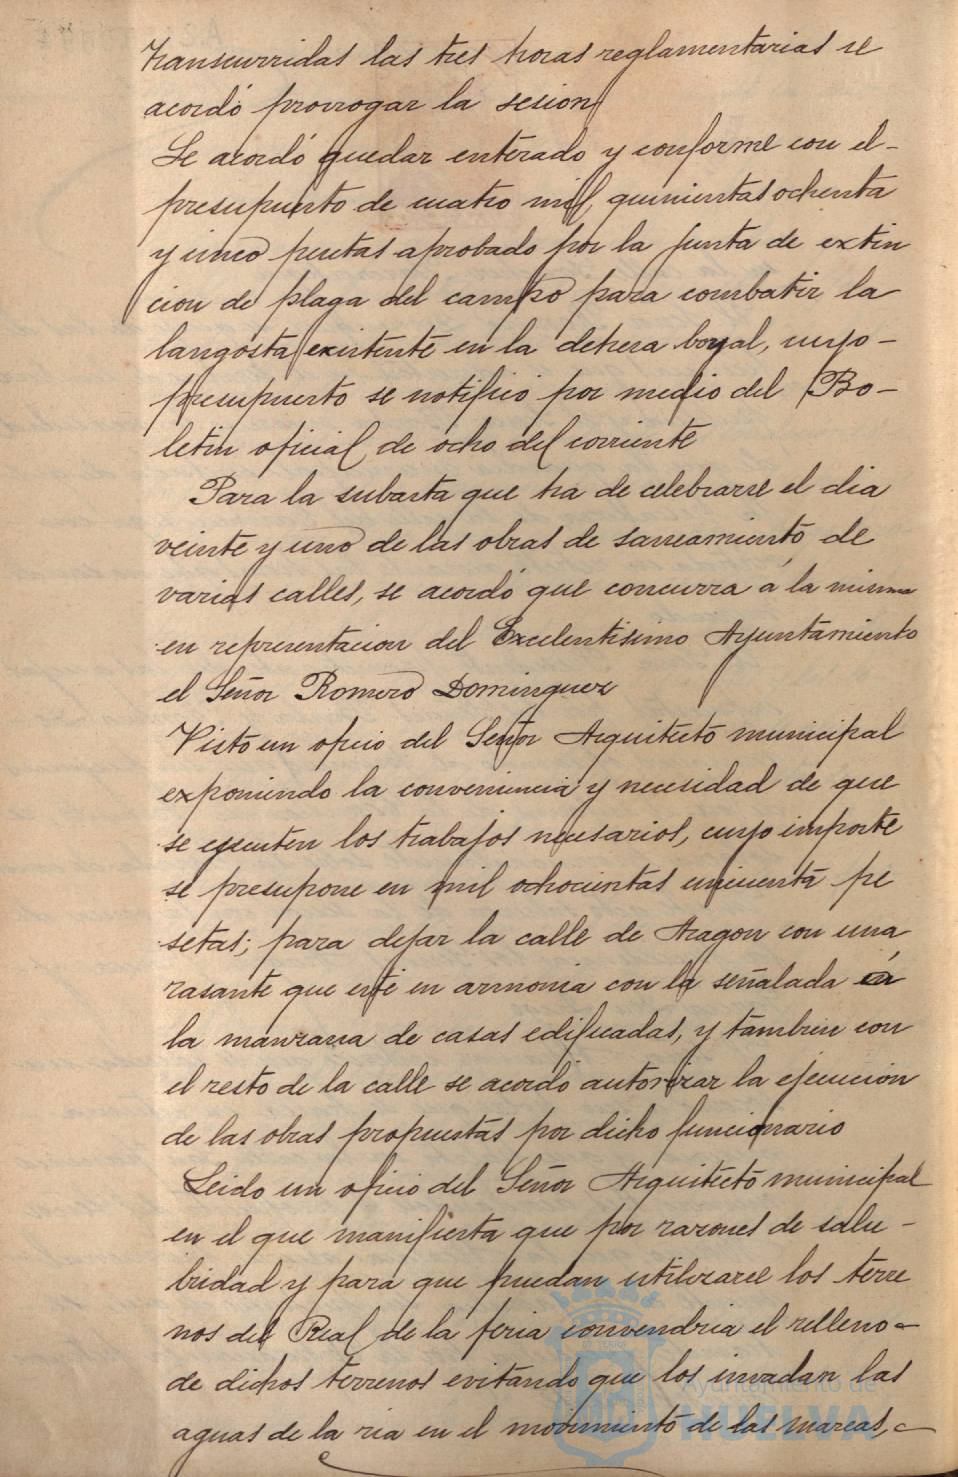 transcurridas las tres horas reglamentarias se
acordó prorrogar la sesion
Se acordó quedar enterado y conforme con el-
presupuesto de cuatro mil, quinientas ochenta
y cinco pesetas aprobado por la Junta de extin
cion de plaga del campo para combatir la
langosta existente en la dehesa boyal, cuyo-
presupuesto se notificó por medio del Bo-
letin oficial de ocho del corriente
Para la subasta que ha de celebrarse el dia
veinte y uno de las obras de saneamiento de
varias calles, se acordó que concurra á la misma
en representacion del Excelentisimo Ayuntamiento
el Señor Romero Dominguez
Visto un oficio del Señor Arquitecto municipal
exponiendo la conveniencia y necesidad de que
se ejecuten los trabajos necesarios, cuyo importe
se presupone en mil ochocientas cincuenta pe
setas; para dejar la calle de Aragon con una
rasante que esté en armonia con la señalada á
la manzana de casas edificadas, y tambien con
el resto de la calle se acordó autorizar la ejecucion
de las obras propuestas por dicho funcionario
Leido un oficio del Señor Arquitecto municipal
en el que manifiesta que por razones de salu-
bridad y para que puedan utilizarse los terre
nos del Real de la feria convendria el relleno-
de dichos terrenos evitando que los invadan las
aguas de la ria en el movimiento de las mareas,-
Ayuntamiento de
HUELVA